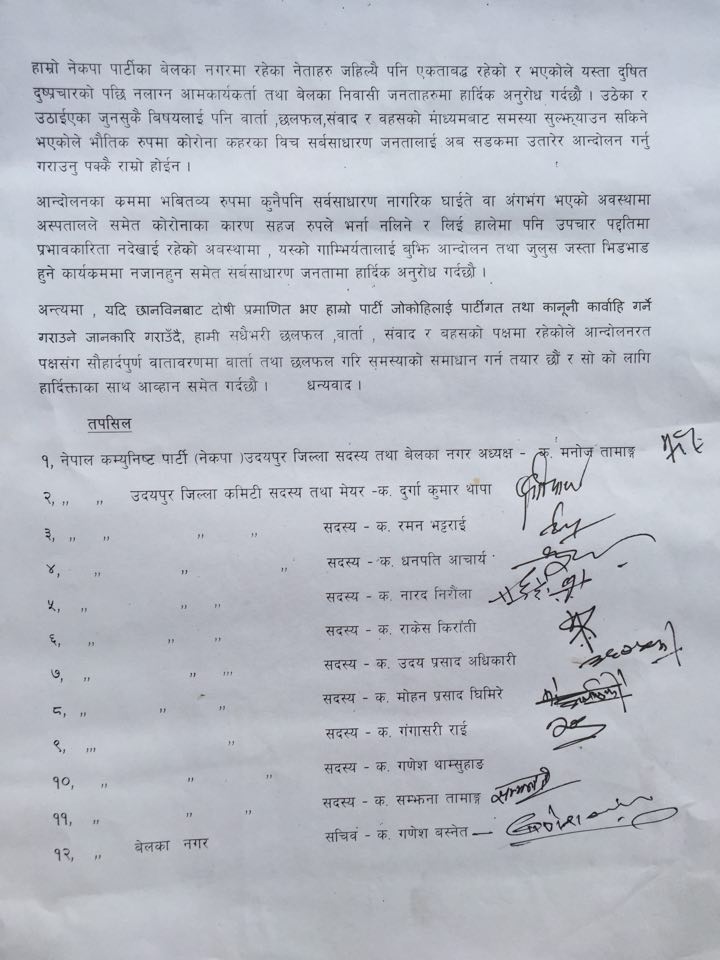 हाम्रो नेकपा पार्टीका बेलका नगरमा रहेका नेताहरु जहिल्यै पनि एकताबद्ध रहेको र भएकोले यस्ता दुषित
दुष्प्रचारको पछि नलाग्न आमकार्यकर्ता तथा बेलका निवासी जनताहरुमा हार्दिक अनुरोध गर्दछौ । उठेका र
उठाईएका जुनसुकै बिषयलाई पनि वार्ता ,छलफल,संवाद र बहसको माध्यमबाट समस्या सुल्झ्याउन सकिने
भएकोले भौतिक रुपमा कोरोना कहरका विच सर्वसाधारण जनतालाई अब सडकमा उतारेर आन्दोलन गर्नु
गराउनु पक्कै राम्रो होईन ।
आन्दोलनका कममा भबितव्य रुपमा कुनैपनि सर्वसाधारण नागरिक घाईते वा अंगभंग भएको अवस्थामा
अस्पतालले समेत कोरोनाका कारण सहज रुपले भर्ना नलिने र लिई हालेमा पनि उपचार पद्दतिमा
प्रभावकारिता नदेखाई रहेको अवस्थामा , यस्को गाम्भिर्यतालाई बुझि आन्दोलन तथा जुलुस जस्ता भिडभाड
हुने कार्यकममा नजानहुन समेत सर्बसाधारण जनतामा हार्दिक अनुरोध गर्दछौ ।
अन्त्यमा , यदि छानविनबाट दोषी प्रमाणित भए हाम्रो पार्टी जोकोहिलाई पार्टीगत तथा कानूनी कार्वाहि गर्ने
गराउने जानकारि गराउँदै, हामी सधैभरी छलफल ,वार्ता , संवाद र बहसको पक्षमा रहेकोले आन्दोलनरत
पक्षसंग सौहार्दपुर्ण वातावरणमा वार्ता तथा छलफल गरि समस्याको समाधान गर्न तयार छौं र सो को लागि
हार्दिक्ताका साथ आव्हान समेत गर्दछौ । धन्यवाद ।
तपसिल
१, नेपाल कम्युनिष्ट पार्टी (नेकपा )उदयपुर जिल्ला सदस्य तथा बेलका नगर अध्यक्ष - क. मनोज तामाङ्ग
२, ,, ,, उदयपुर जिल्ला कमिटी सदस्य तथा मेयर -क. दुर्गा कुमार थापा
३, ,, ,, ,, ,, सदस्य - क. रमन भट्टराई
४, ,, ,, ,, सदस्य - क. धनपति आचार्य
५, ,, ,, ,, सदस्य - क. नारद निरौला
६, ,, ,, ,, सदस्य - क. राकेस किरांती
७, ,, ,, ,,, सदस्य - क. उदय प्रसाद अधिकारी
८, ,, ,, ,, सदस्य - क. मोहन प्रसाद घिमिरे
९, ,,, ,, सदस्य - क. गंगासरी राई
१०, ,, ,, ,, सदस्य - क. गणेश थाम्सुहाङ
११, ,, ,, ,, सदस्य - क. सम्झना तामाङ्ग
१२, ,, बेलका नगर सचिव - क. गणेश बस्नेत